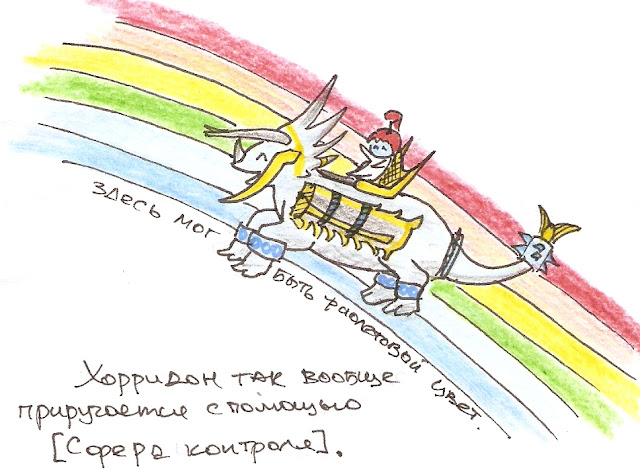 ЗДЕСЬ МОГ БЫТЬ ФИОЛЕТОВЫЙ ЦВЕТ.
Хорридон так вообще
приручается с помощью
[Сфера контроля].